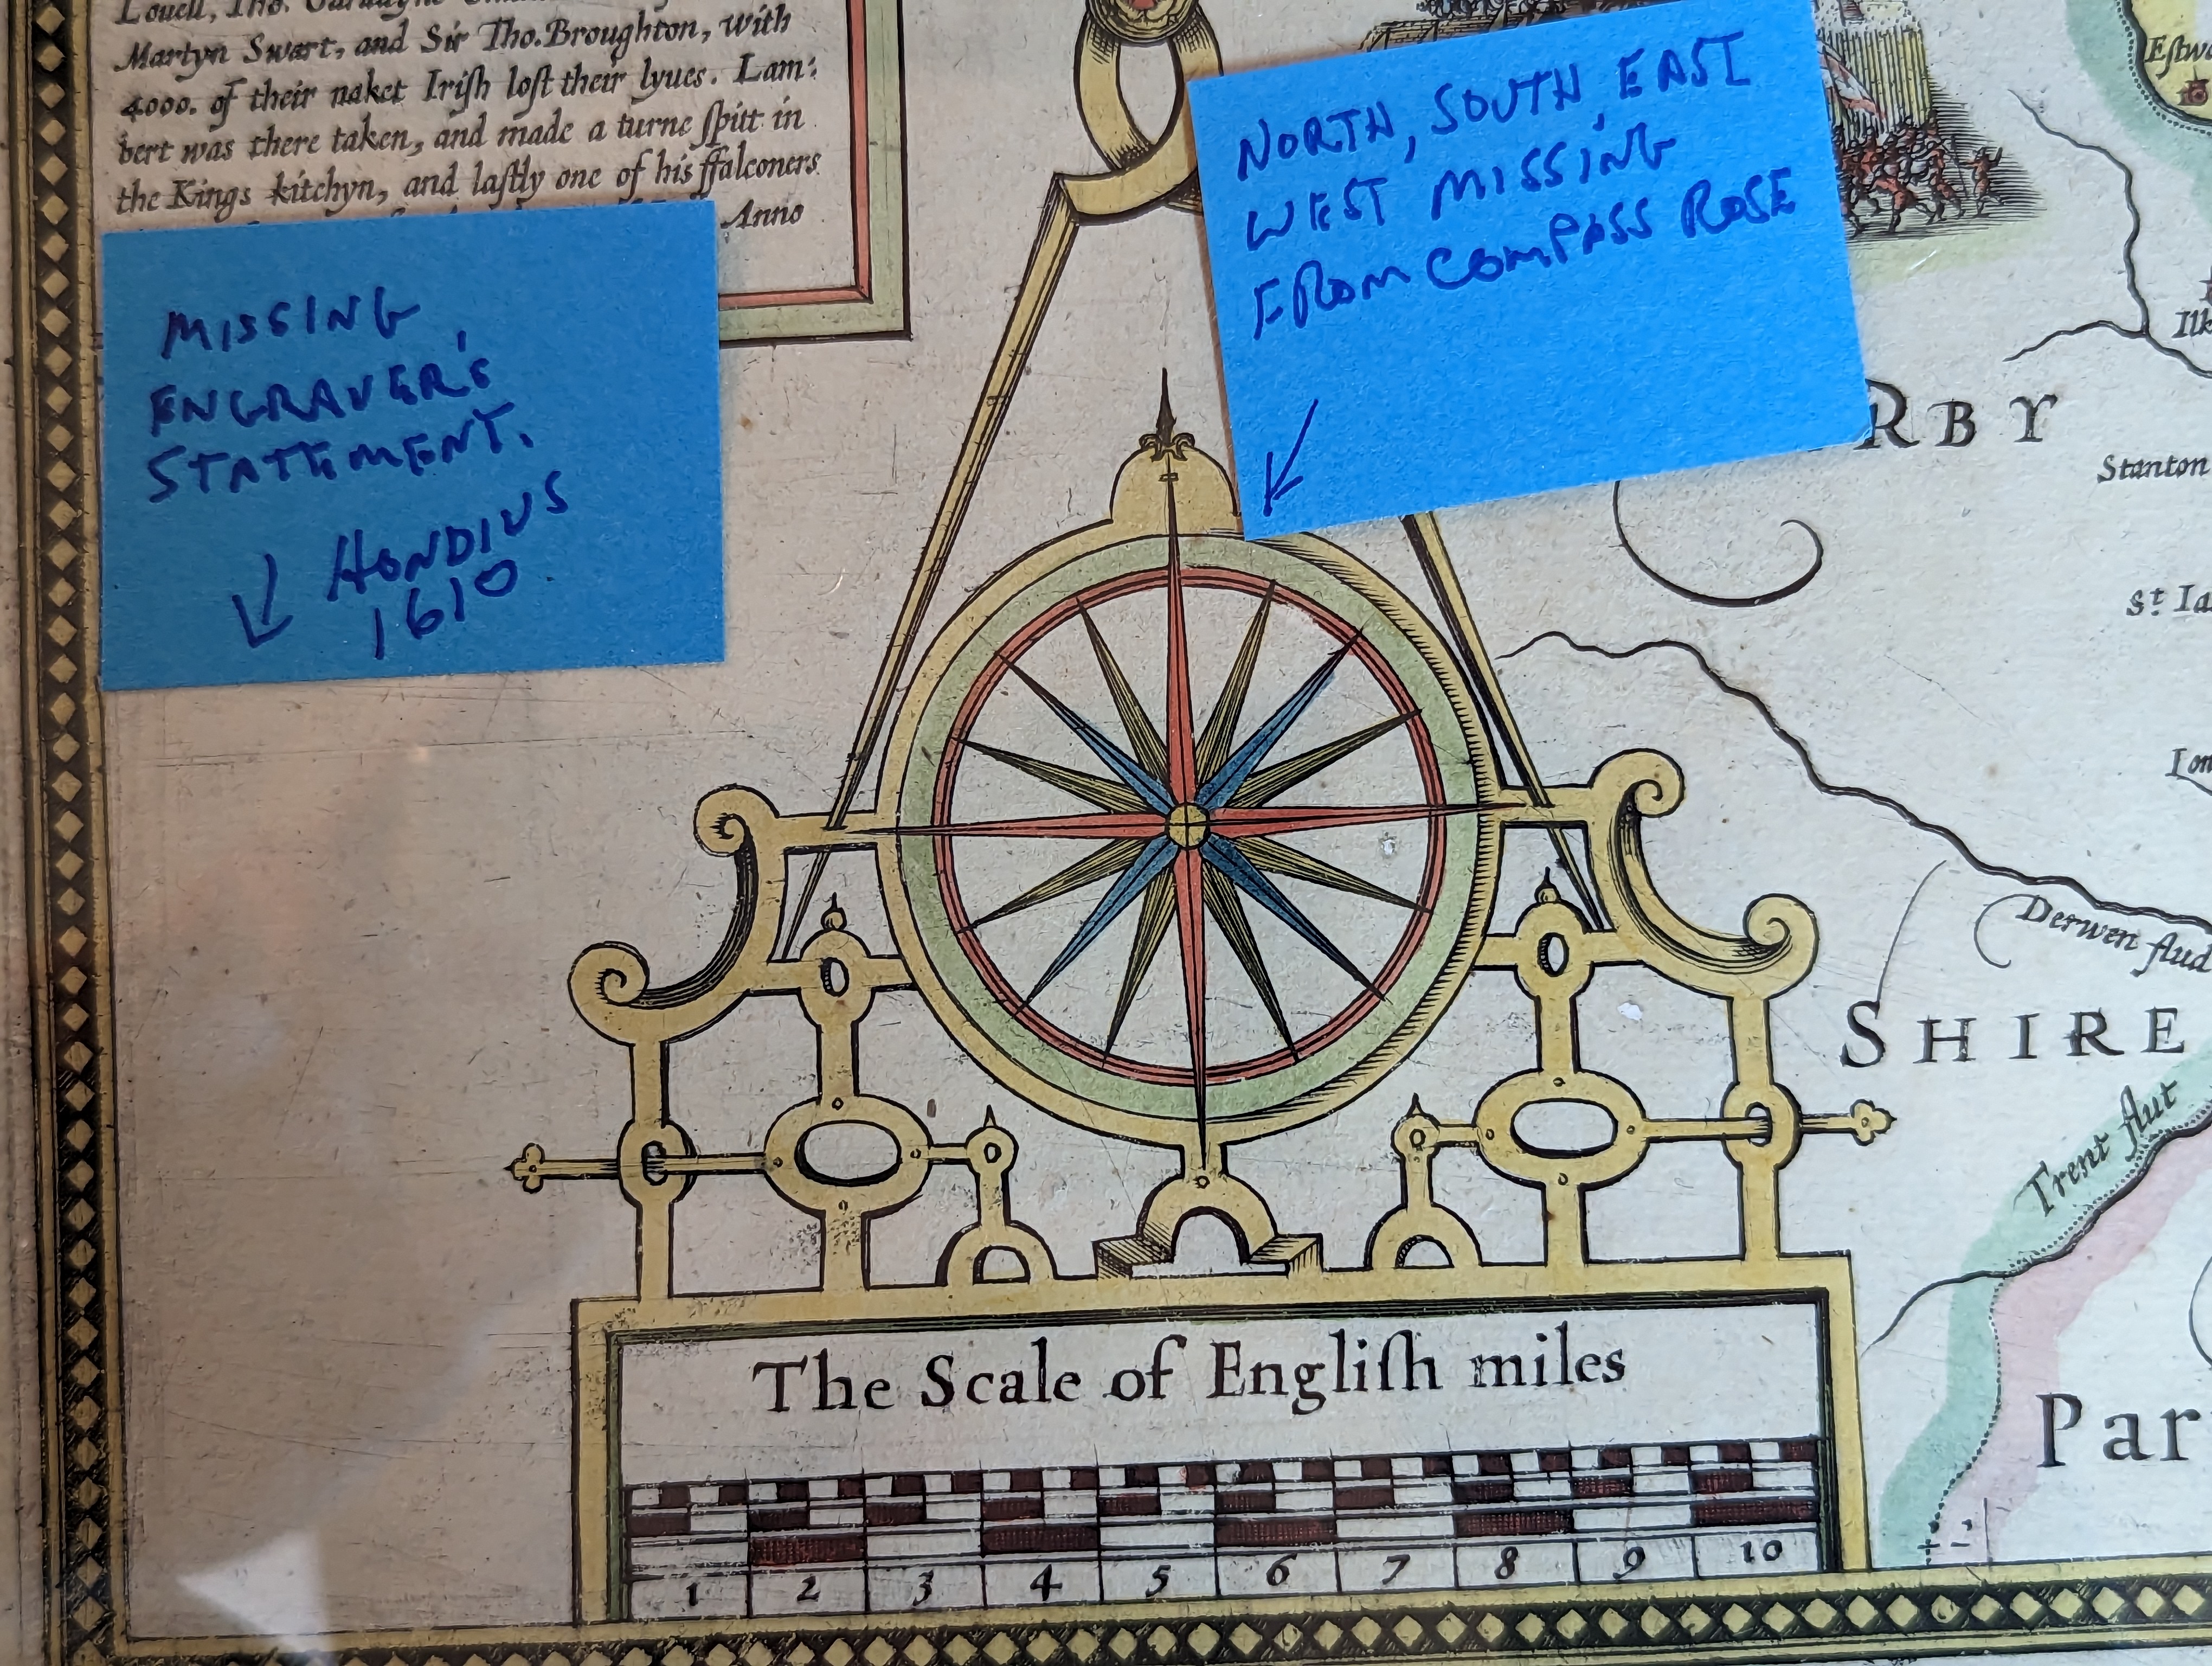 Martyn Swart, and Sir Tho. Broughton, with
4000. of their naket Iriſh loſt their lyues. Lam:
bert was there taken, and made a turne ſpitt in
the Kings kitchyn, and laſtly one of his ffalconers
Anno
MISSING
ENGRAVER'S
STATEMENT.
HONDIUS
1610
NORTH, SOUTH, EAST
WEST MISSING
FROM COMPASS ROSE
Eſtw
Ilk
RBY
Stanton
St. Ia
Lon
Derwen flud
SHIRE
Trent flut
Par
The Scale of Engliſh miles
1 2 3 4 5 6 7 8 9 10